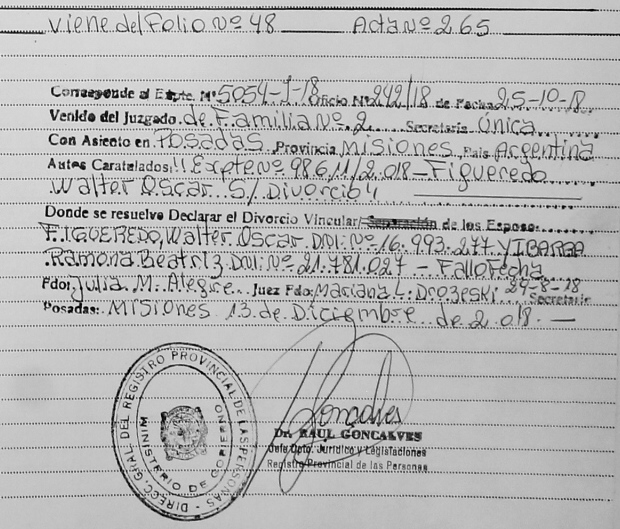 Viene del Folio Nº 48 Acta Nº 265
Corresponde al Expte. Nº 5054-J-18 Oficio Nº 242/18 de Fecha 25-10-18
Venido del Juzgado de Familia Nº 2 Secretaría Única
Con Asiento en Posadas Provincia Misiones País Argentina
Autos Caratulados: "Expte Nº 986/1/2.018 - Figueredo
Walter Oscar S/ Divorcio"
Donde se resuelve Declarar el Divorcio Vincular/Separación de los Esposos
FIGUEREDO, Walter Oscar DNI: Nº 16.993.277 Y IBARRA
Ramona Beatriz DNI: Nº 21.781.027 - Fallo Fecha
Fdo: Julia M. Alegre Juez Fdo: Mariana L. Drozeski 29-8-18 Secretaria
Posadas: Misiones 13 de Diciembre de 2.018
DIRECC. GRAL DEL REGISTRO PROVINCIAL DE LAS PERSONAS
MINISTERIO DE GOBIERNO
Goncalves
Dr. RAUL GONCALVES
Jefe Dpto. Jurídico y Legislaciones
Registro Provincial de las Personas